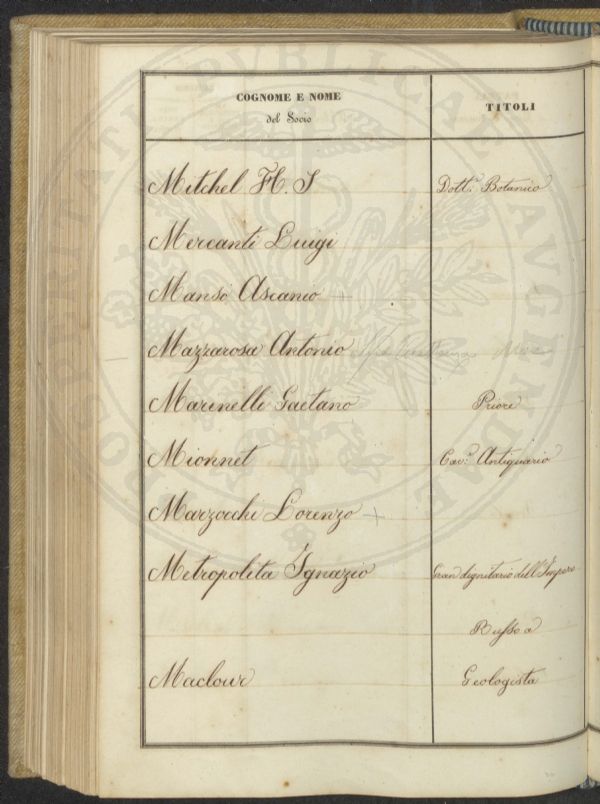 COGNOME E NOME
del Socio
TITOLI
Mitchel H. S Dott.r Botanico
Mercanti Luigi
Mansi Ascanio +
Mazzarosa Antonio
Marinelli Gaetano Priore
Mionnet Cav.e Antiquario
Marzocchi Lorenzo +
Metropolita Ignazio Gran dignitario dell'Impero
Russo
Maclour Geologista
PROSPERITATI PUBLICAE AUGENDAE